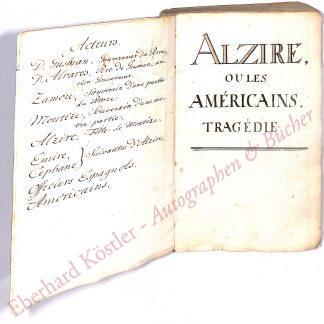 Acteurs.
D. Gusman, Gouverneur du Pérou,
D. Alvares, Père de Gusman, an-
cien Gouverneur.
Zamore, Souverain d'une partie
du
Montèze, Souverain d'une au-
tre partie.
Alzire, Fille de Montèze.
Emire,
Céphane } Suivantes d'Alzire,
Officiers Espagnols.
Américains.
ALZIRE,
OU LES
AMÉRICAINS.
TRAGÉDIE
Eberhard Köstler - Autographen & Bücher